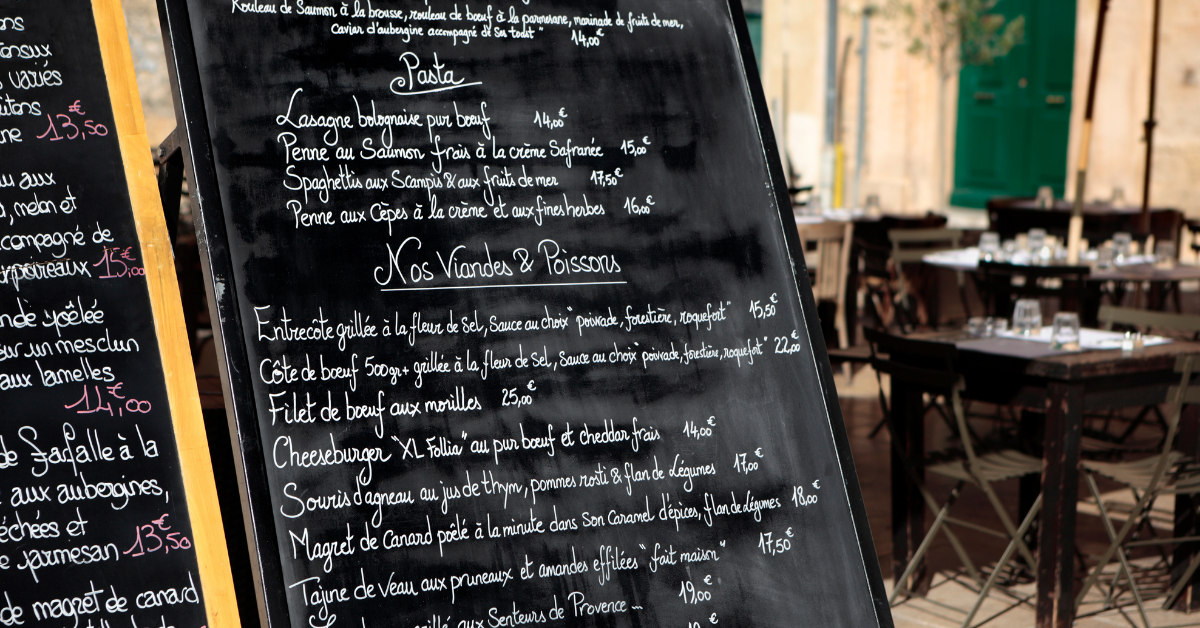 ons
variés
13,50€
aux
, melon et
compagné de
15€,00
poêlée
sur un mesclun
aux lamelles
14€,00
de farfalle à la
aux aubergines,
échées et
parmesan 13€,50
de magret de canard
Rouleau de Saumon à la brousse, rouleau de bœuf à la parmesane, marinade de fruits de mer,
Caviar d'aubergine accompagné de Son toast " 14,00€
Pasta
Lasagne bolognaise pur bœuf 14,00€
Penne au Saumon frais à la crème Safranée 15,00€
Spaghettis aux Scampis & aux fruits de mer 17,50€
Penne aux Cèpes à la crème et aux fines herbes 16,00€
Nos Viandes & Poissons
Entrecôte grillée à la fleur de Sel, Sauce au choix "poivade, forestière, roquefort" 15,50€
Côte de bœuf 500gr+ grillée à la fleur de Sel, Sauce au choix "poivade, forestière, roquefort" 22,00€
Filet de bœuf aux morilles 25,00€
Cheeseburger "XL Follia" au pur bœuf et cheddar frais 14,00€
Souris d'agneau au jus de thym, pommes rosti & flan de Légumes 17,00€
Magret de Canard poêlé à la minute dans Son Caramel d'épices, flan de légumes 18,00€
Tajine de veau aux pruneaux et amandes effilées "fait maison" 17,50€
aux Senteurs de Provence ... 19,00€
€